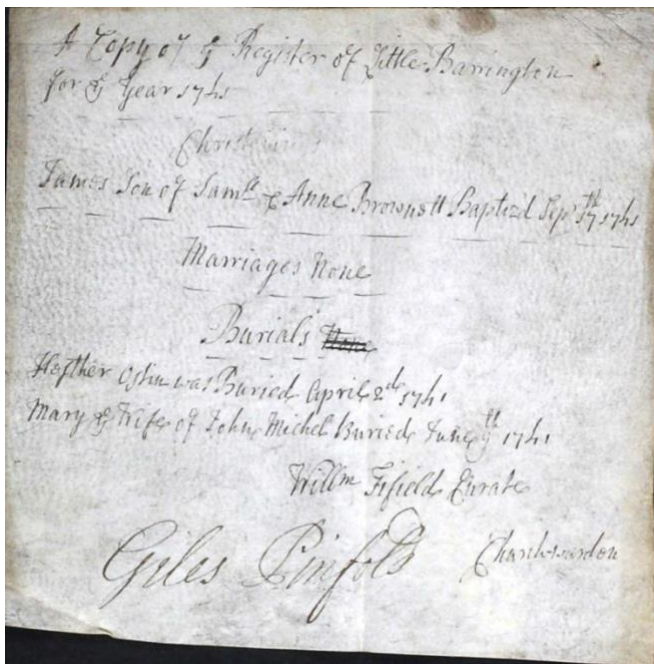 A Copy of ye Register of Little Barrington
for ye Year 1741
Christenings
James Son of Samll & Anne Brownett Baptiz'd Sepr 17th 1741
Marriages None
Burials None
Hesther Ostin was Buried April 2d 1741
Mary ye Wife of John Michel Buried June 9th 1741
Willm Fifield Curate
Giles Pinfold Churchwarden